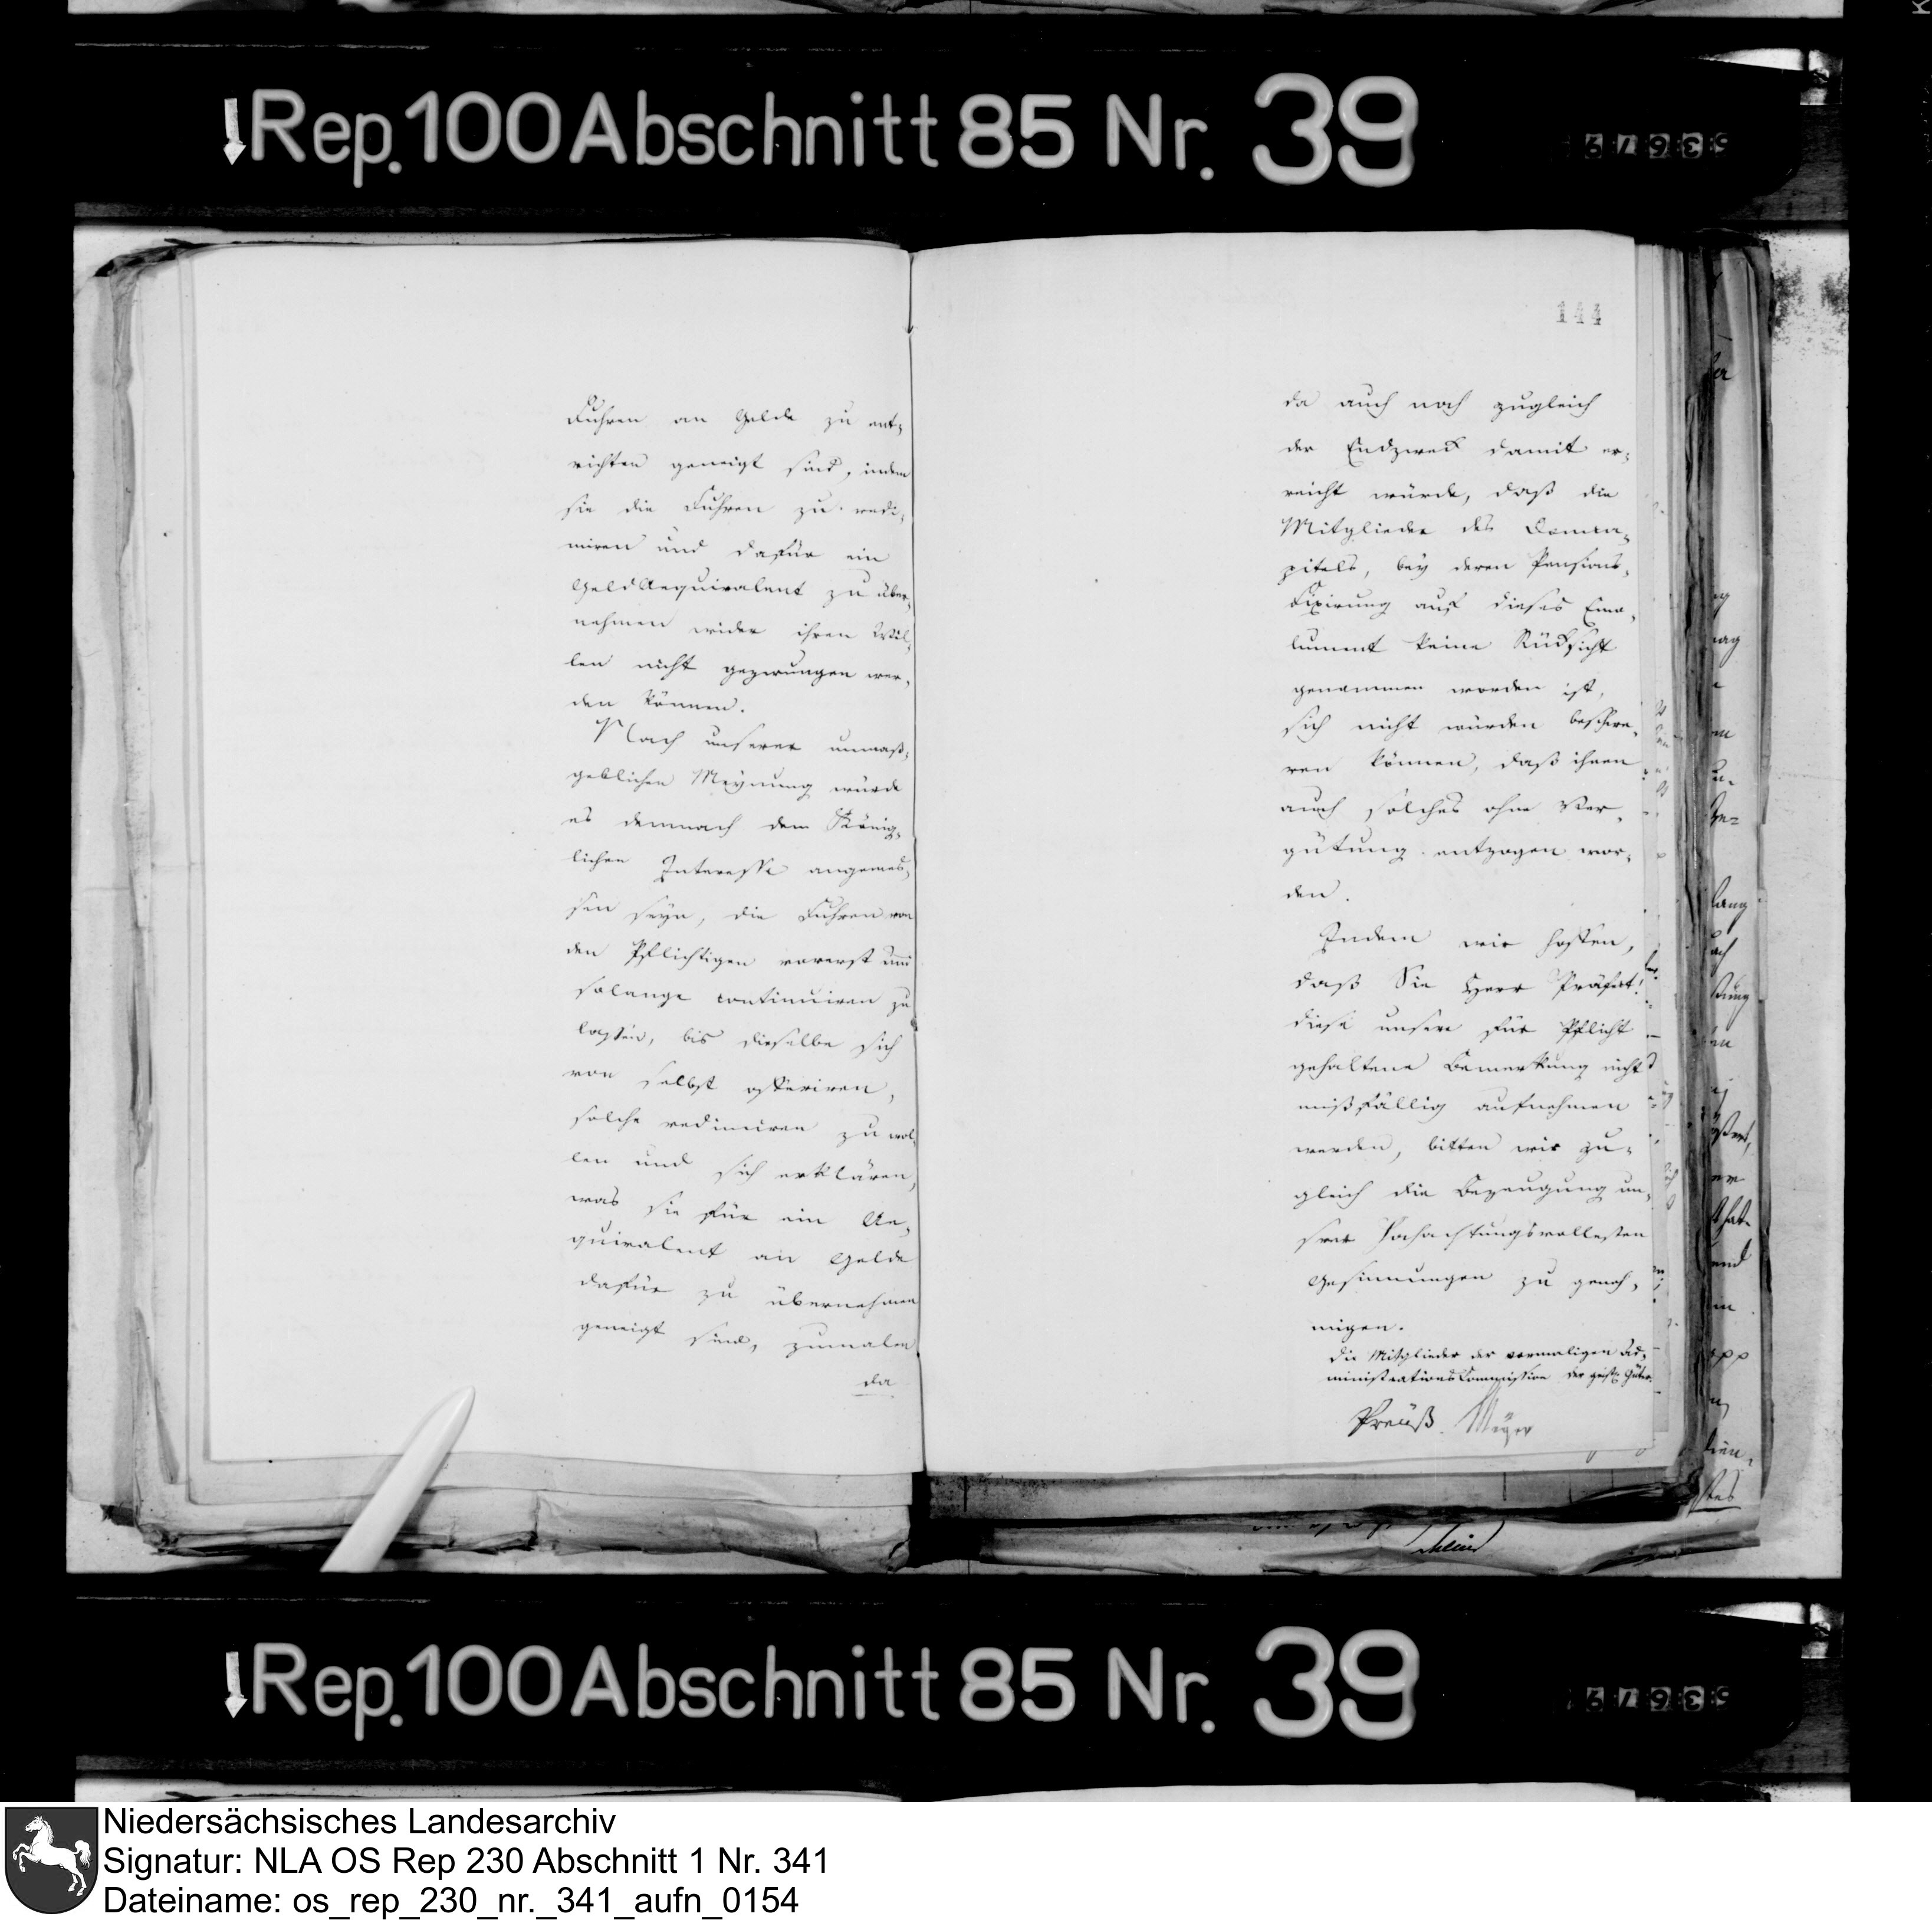 Rep. 100 Abschnitt 85 Nr. 39
Fuhren an Gelde zu ent-
richten geneigt sind, indem
sie die Fuhren zu redi-
miren und dafür ein
GeldAequivalent zu über-
nehmen wider ihren Wil-
len nicht gezwungen wer-
den können.
Nach unserer unmaß-
geblichen Meynung würde
es demnach dem König-
lichen Interesse angemes-
sen seyn, die Fuhren von
den Pflichtigen vorerst und
solange continuiren zu
laßen, bis dieselbe sich
von selbst offeriren,
solche redimiren zu wol-
len und sich erklären,
was sie für ein Ae-
quivalent an Gelde
dafür zu übernehmen
geneigt sind, zumalen
da
144
da auch noch zugleich
der Endzweck damit er-
reicht würde, daß die
Mitglieder des Domca-
pitels, bey deren Pensions-
Fixirung auf dieses Emo-
lument keine Rücksicht
genommen worden ist,
sich nicht würden beschwe-
ren können, daß ihnen
auch solches ohne Ver-
gütung entzogen wor-
den.
Indem wir hoffen,
daß Sie Herr Präfect!
diese unsere für Pflicht
gehaltene Bemerkung nicht
mißfällig aufnehmen
werden, bitten wir zu-
gleich die Bezeugung un-
srer Hochachtungsvollesten
Gesinnungen zu geneh-
migen.
Die Mitglieder der vormaligen Ad-
ministrationsCommission der geistl. Güter.
Preuß. Meyer
Rep. 100 Abschnitt 85 Nr. 39
Niedersächsisches Landesarchiv
Signatur: NLA OS Rep 230 Abschnitt 1 Nr. 341
Dateiname: os_rep_230_nr._341_aufn_0154